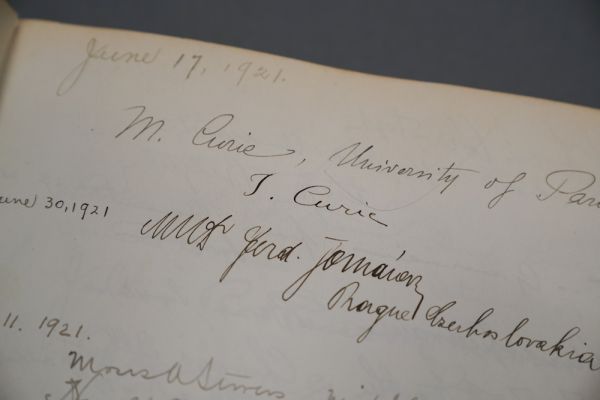 June 17, 1921.
M. Curie, University of Par
I. Curie
une 30, 1921
Ferd.
Prague Czechoslovakia
11. 1921.